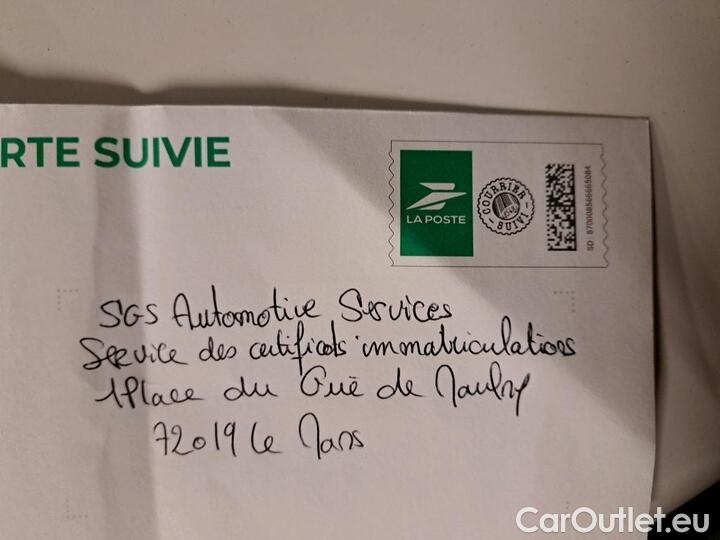 RTE SUIVIE
LA POSTE
COURRIER SUIVI
SD: 870008566665084
SGS Automotive Services
Service des certificats immatriculations
1 Place du Gué de Maulny
72019 Le Mans
CarOutlet.eu